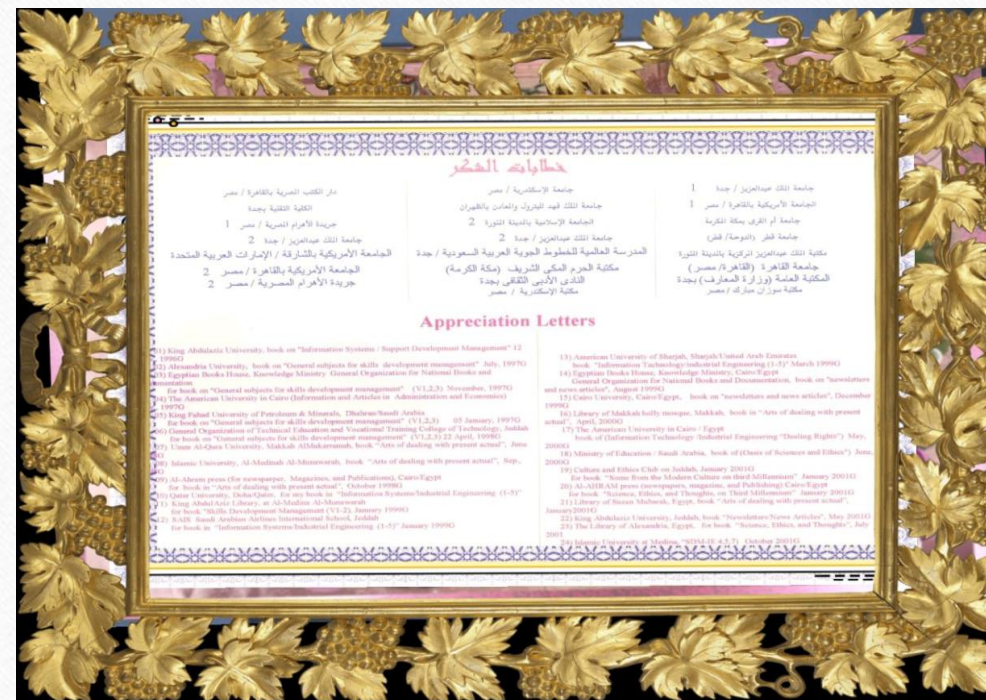 خطابات الشكر
جامعة الملك عبدالعزيز / جدة 1
الجامعة الأمريكية بالقاهرة / مصر 1
جامعة أم القرى بمكة المكرمة
جامعة قطر (الدوحة/ قطر)
مكتبة الملك عبدالعزيز المركزية بالمدينة المنورة
جامعة القاهرة (القاهرة/ مصر)
المكتبة العامة (وزارة المعارف) بجدة
مكتبة سوزان مبارك / مصر
جامعة الإسكندرية / مصر
جامعة الملك فهد للبترول والمعادن بالظهران
الجامعة الإسلامية بالمدينة المنورة 2
جامعة الملك عبدالعزيز / جدة 2
المدرسة العالمية للخطوط الجوية العربية السعودية / جدة
مكتبة الحرم المكى الشريف (مكة المكرمة)
النادى الأدبى الثقافى بجدة
مكتبة الإسكندرية / مصر
دار الكتب المصرية بالقاهرة / مصر
الكلية التقنية بجدة
جريدة الأهرام المصرية / مصر 1
جامعة الملك عبدالعزيز / جدة 2
الجامعة الأمريكية بالشارقة / الإمارات العربية المتحدة
الجامعة الأمريكية بالقاهرة / مصر 2
جريدة الأهرام المصرية / مصر 2
Appreciation Letters
01) King Abdulaziz University, book on "Information Systems / Support Development Management" 12
1996G
02) Alexandria University, book on "General subjects for skills development management" July, 1997G
03) Egyptian Books House, Knowledge Ministry General Organization for National Books and
mentation
for book on "General subjects for skills development management" (V1,2,3) November, 1997G
04) The American University in Cairo (Information and Articles in Administration and Economics)
1997G
05) King Fahad University of Petroleum & Minerals, Dhahran/Saudi Arabia
for book on "General subjects for skills development management" (V1,2,3) 05 January, 1997G
06) General Organization of Technical Education and Vocational Training College of Technology, Jeddah
for book on "General subjects for skills development management" (V1,2,3) 22 April, 1998G
07) Umm Al-Qura University, Makkah AlMukarramah, book "Arts of dealing with present actual", June
08) Islamic University, Al-Madinah Al-Munawarah, book "Arts of dealing with present actual", Sep.,
09) Al-Ahram press (for newspaper, Magazines, and Publications), Cairo/Egypt
for book in "Arts of dealing with present actual", October 1998G
10) Qatar University, Doha/Qatar, for my book in "Information Systems/Industrial Engineering (1-5)"
1) King AbdulAziz Library, at Al-Madina Al-Munawarah
for book "Skills Development Management (V1-2), January 1999G
12) SAIS Saudi Arabian Airlines International School, Jeddah
for book in "Information Systems/Industrial Engineering (1-5)" January 1999G
13) American University of Sharjah, Sharjah/United Arab Emirates
book "Information Technology/industrial Engineering (1-5)" March 1999G
14) Egyptian Books House, Knowledge Ministry, Cairo/Egypt
General Organization for National Books and Documentation, book on "newsletters
and news articles", August 1999G
15) Cairo University, Cairo/Egypt, book on "newsletters and news articles", December
1999G
16) Library of Makkah holly mosque, Makkah, book in "Arts of dealing with present
actual", April, 2000G
17) The American University in Cairo / Egypt
book of (Information Technology /Industrial Engineering "Dealing Rights") May,
2000G
18) Ministry of Education / Saudi Arabia, book of (Oasis of Sciences and Ethics") June,
2000G
19) Culture and Ethics Club on Jeddah, January 2001G
for book "Some from the Modern Culture on third Millennium" January 2001G
20) Al-AHRAM press (newspaper, magazine, and Publishing) Cairo/Egypt
for book "Science, Ethics, and Thoughts, on Third Millennium" January 2001G
21) Library of Suzan Mubarak, Egypt, book "Arts of dealing with present actual",
January2001G
22) King Abdulaziz University, Jeddah, book "Newsletters/News Articles", May 2001G
23) The Library of Alexandria, Egypt, for book "Science, Ethics, and Thoughts", July
2001
24) Islamic University at Medina, "SDM-IE 4,5,7) October 2001G